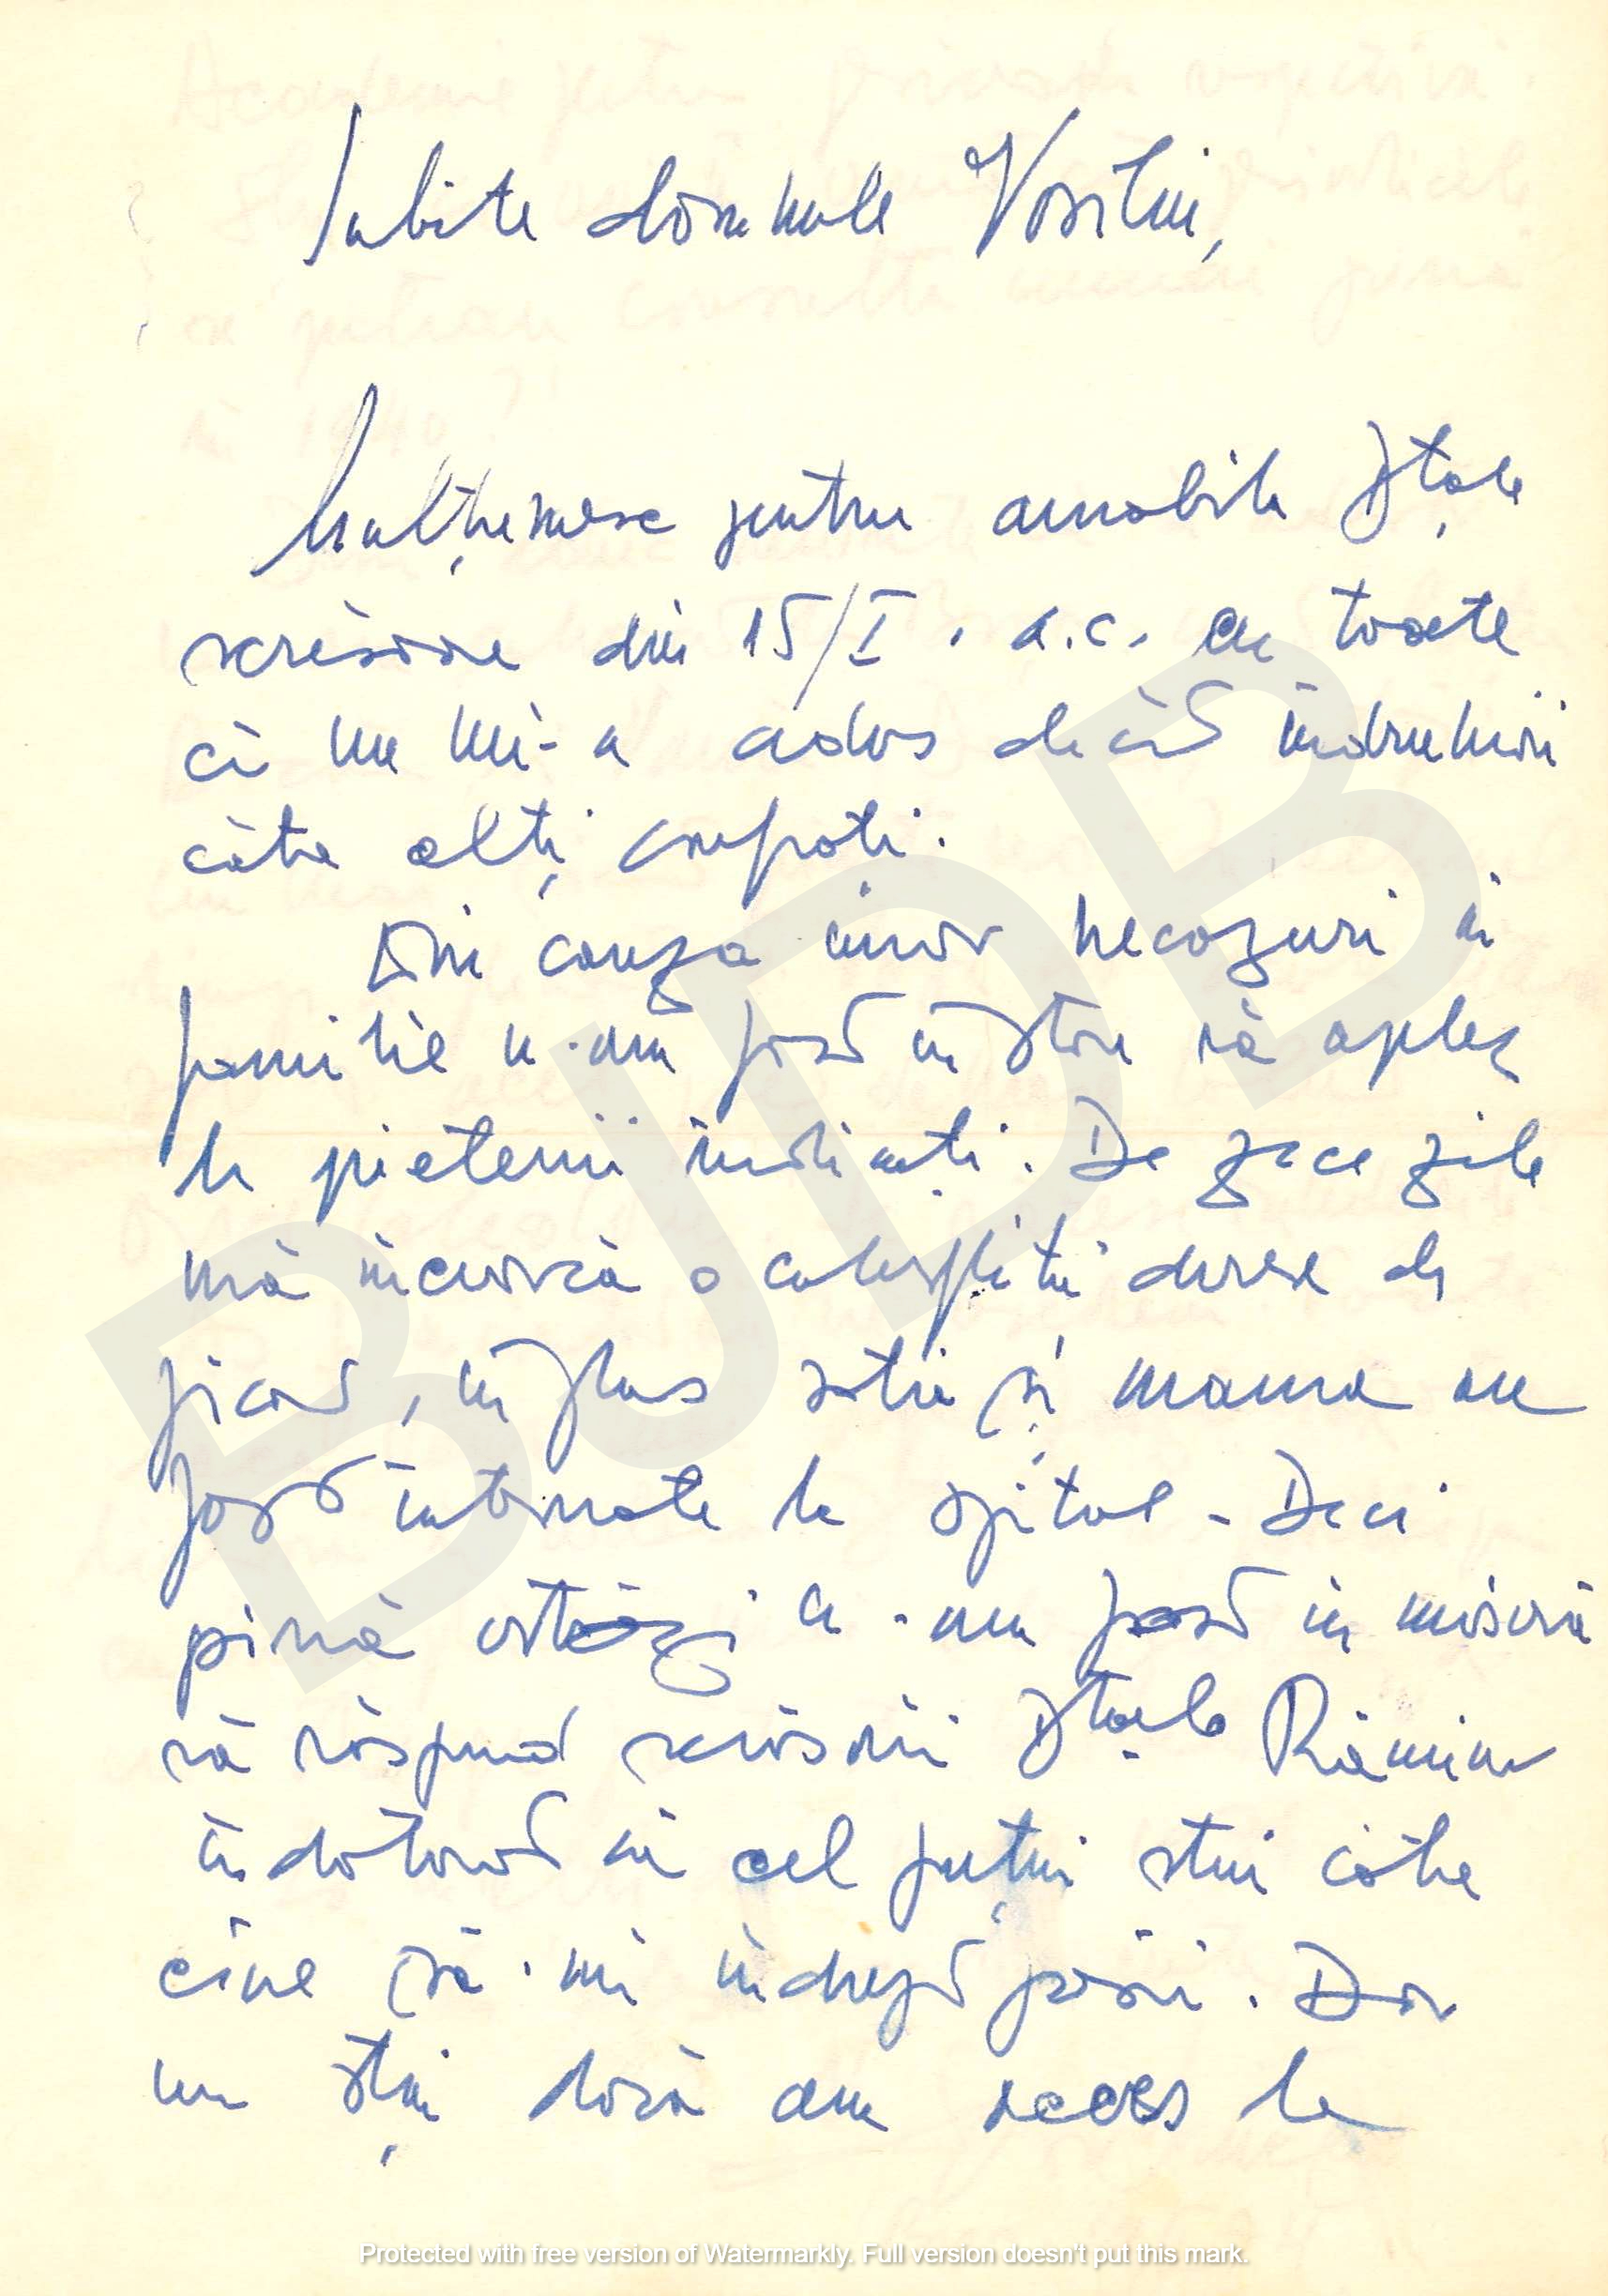 Iubite domnule Vasiliu,
Mulțumesc pentru amabila Dtale
scrisoare din 15/I. a.c. cu toate
că nu mi-a adus decât îndrumări
către alți
Din cauza unor necazuri în
familie n-am fost în stare să apelez
la prietenii indicați. De zece zile
mă încearcă o dureri de
ficat, în plus soția și mama au
fost internate la spital. Deci
pînă astăzi n-am fost în măsură
să răspund scrisorii Dtale Rămîn
îndatorat că cel puțin știu către
cine să-mi îndrept pașii. Dar
nu știu dacă am acces la
BJDB
Protected with free version of Watermarkly. Full version doesn't put this mark.